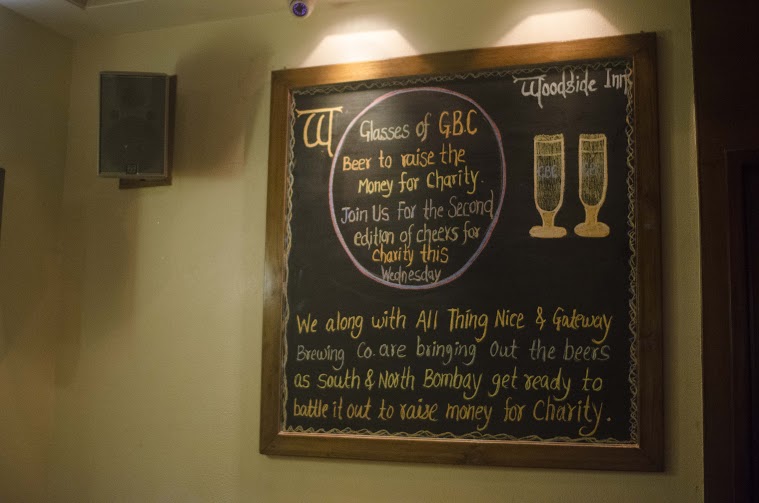 Woodside Inn
W
Glasses of G.B.C
Beer to raise the
Money for Charity.
Join Us For the Second
edition of cheers for
charity this
Wednesday
GBC
We along with All Thing Nice & Gateway
Brewing Co. are bringing out the beers
as south & North Bombay get ready to
battle it out to raise money for Charity.